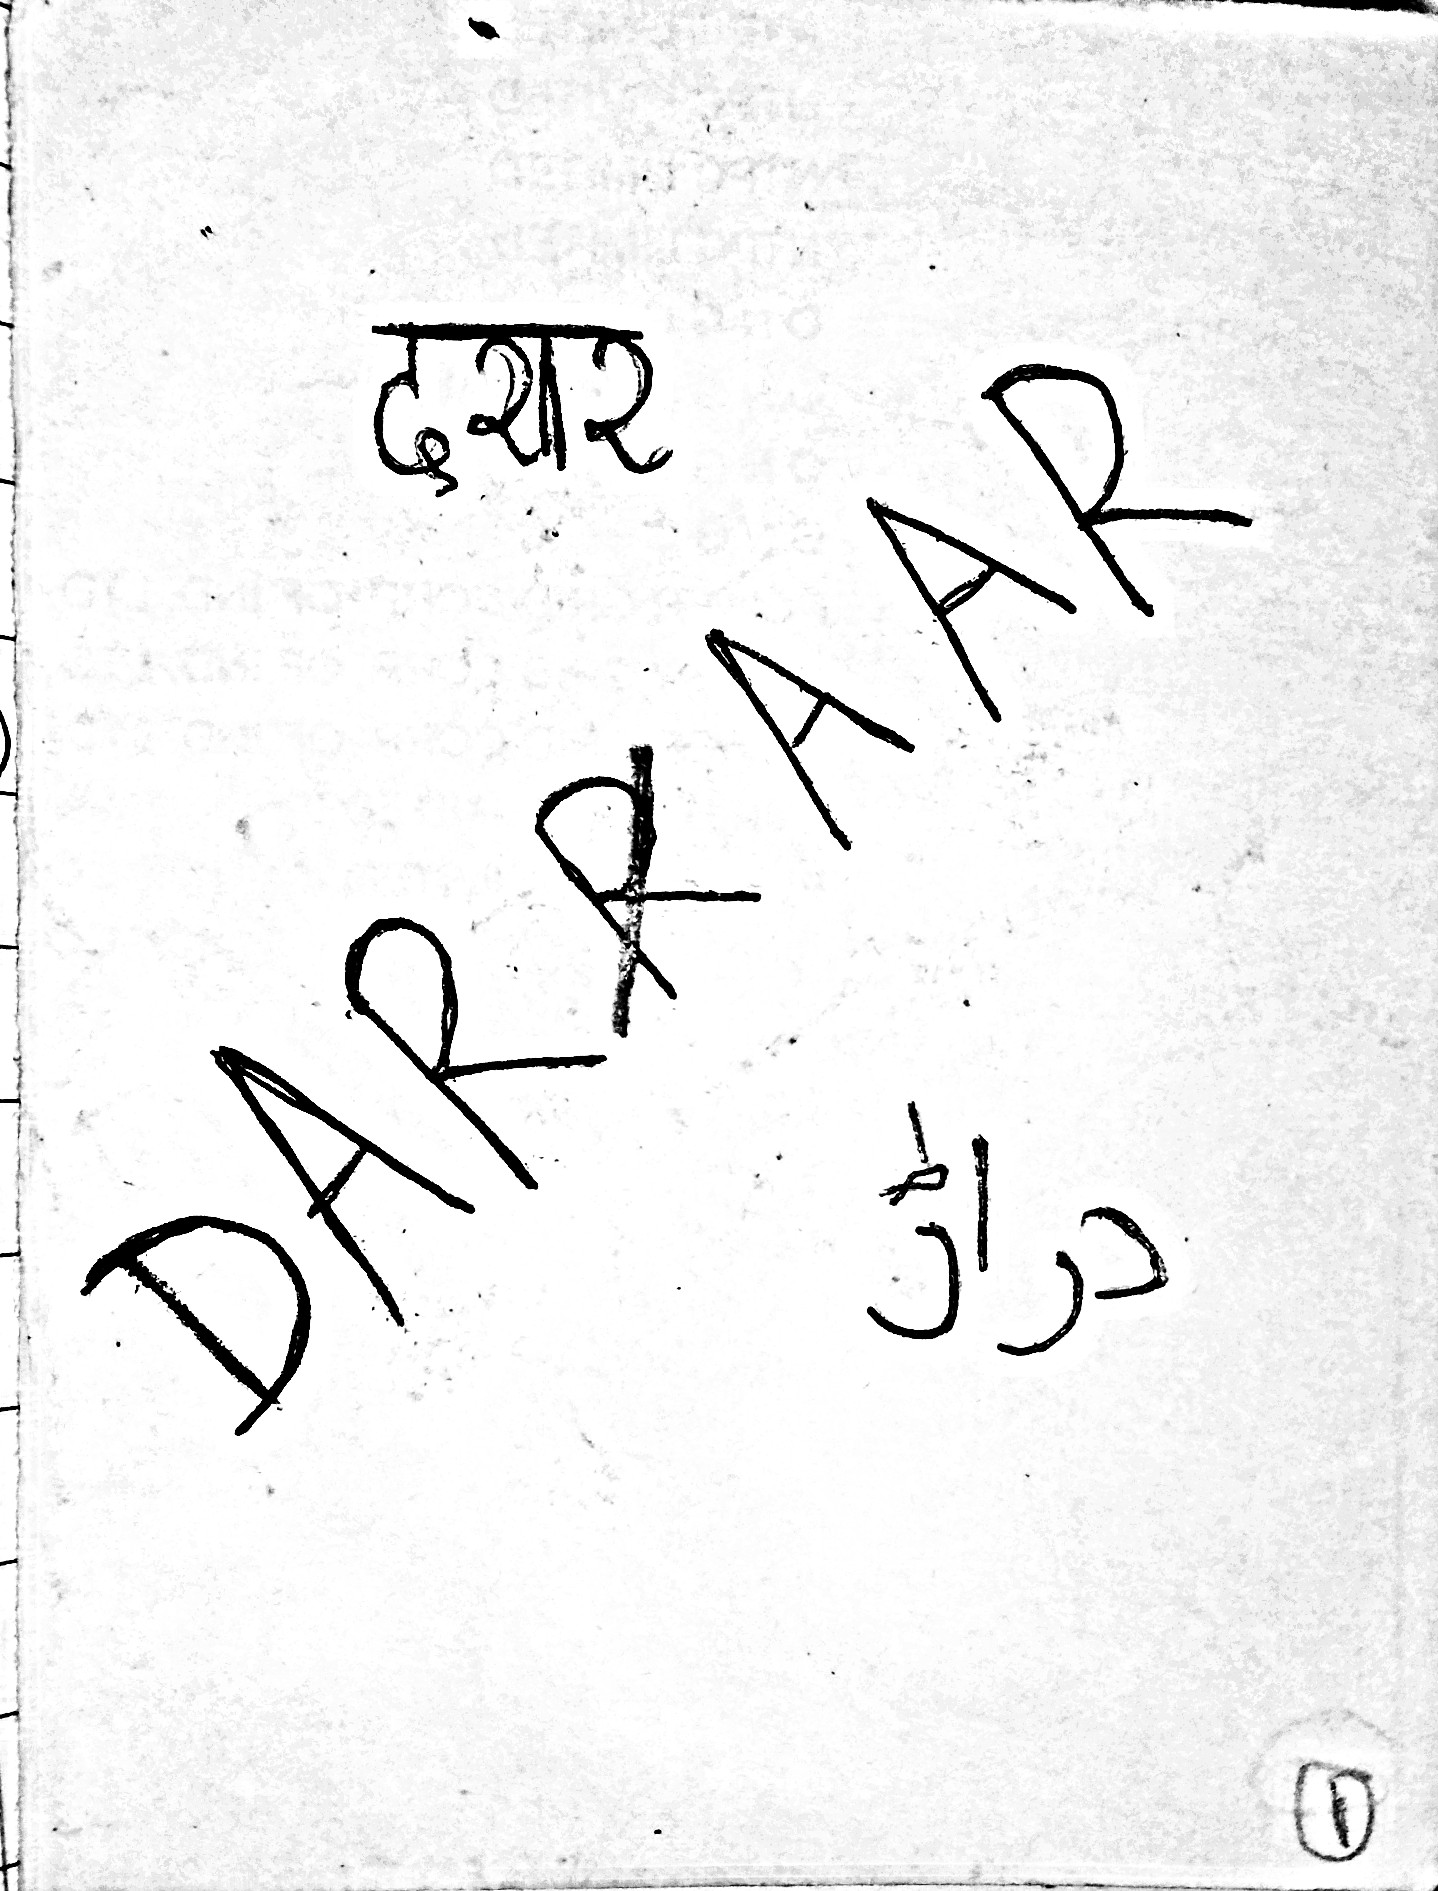 दशार
DARRAAR
دراڑ
1